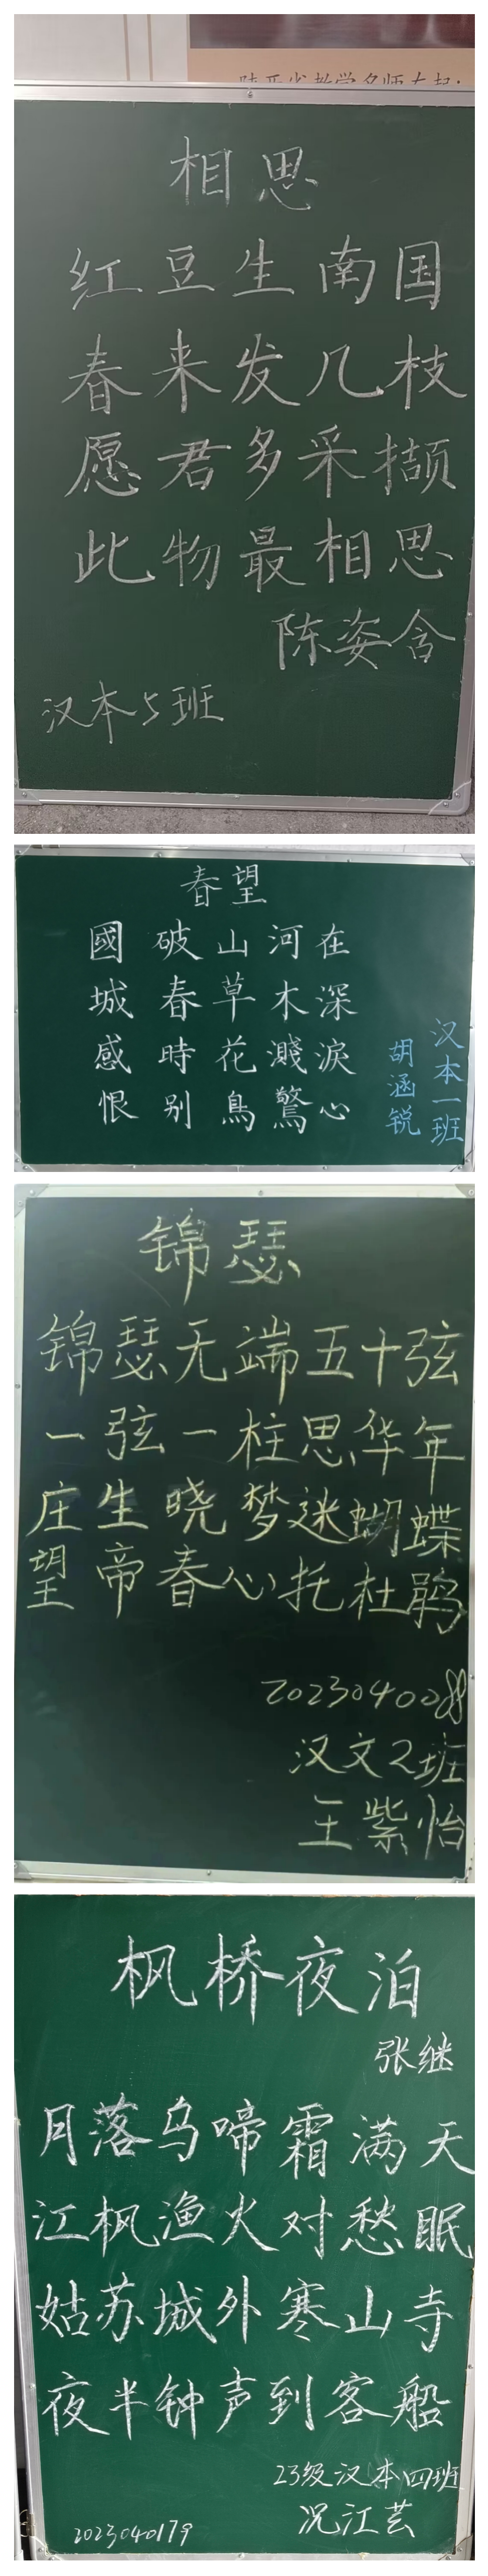 相思
红豆生南国
春来发几枝
愿君多采撷
此物最相思
陈姿含
汉本5班
春望
國破山河在
城春草木深
感時花濺淚
恨别鳥驚心
汉本一班
胡涵锐
锦瑟
锦瑟无端五十弦
一弦一柱思华年
庄生晓梦迷蝴蝶
望帝春心托杜鹃
2023040088
汉文2班
王紫怡
枫桥夜泊
张继
月落乌啼霜满天
江枫渔火对愁眠
姑苏城外寒山寺
夜半钟声到客船
23级汉本四班
况江芸
2023040179